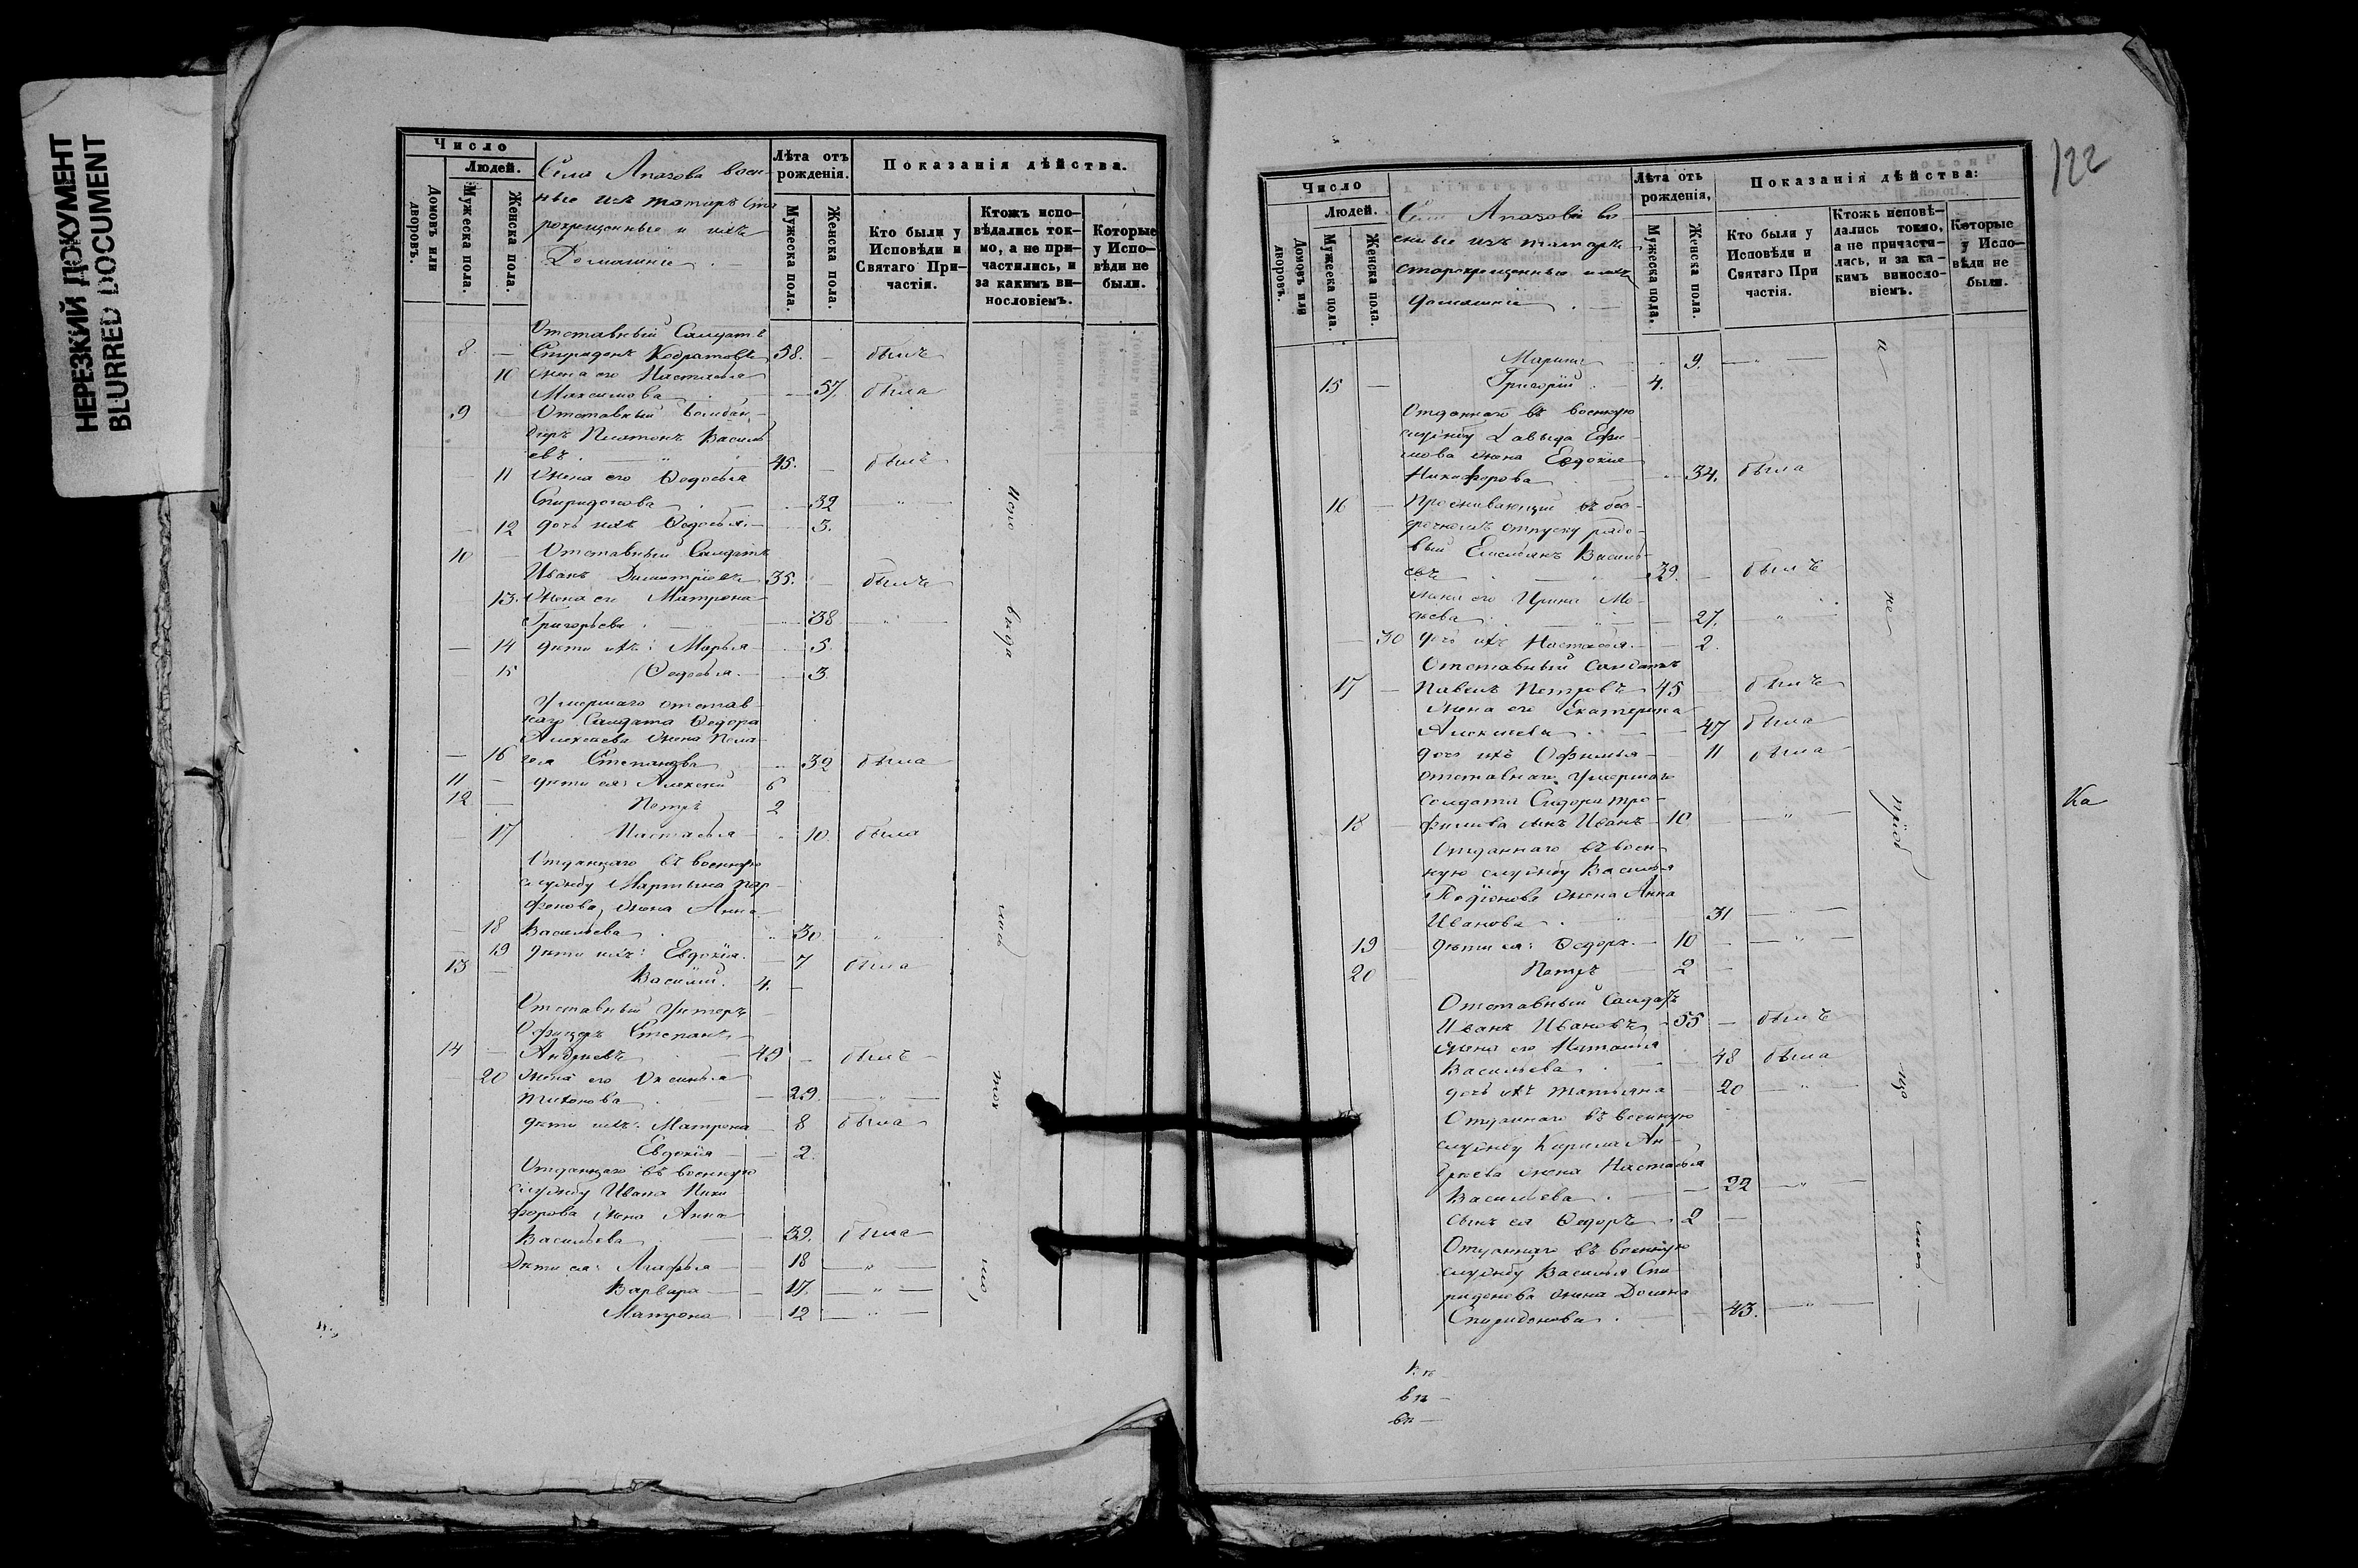 НЕРЕЗКИЙ ДОКУМЕНТ
BLURRED DOCUMENT
Число
Людей.
Домовъ или дворовъ.
Мужеска пола.
Женска пола.
Села Апазова воен-
ные изъ татаръ ста
рокрещенные и ихъ
Домашніе
Лѣта отъ рожденія.
Мужеска пола.
Женска пола.
Показанія дѣйства.
Кто были у Исповѣди и Святаго При-частія.
Ктожъ испо-вѣдались ток-мо, а не при-частились, и за какимъ ви-нословіемъ.
Которые у Испо-вѣди не были.
Отставный Салдатъ
8 — Спиридонъ 58. — былъ
10 Жена его Настасья
Максимова — 57. была
9 Отставный
Платонъ Василь
евъ 45. — былъ
— 11 Жена его Ѳедосья
Спиридонова — 32 — " —
— 12 дочь ихъ Ѳедосья. — 3.
10 — Отставный Салдатъ
Иванъ Димитріевъ 35. — былъ
13. Жена его Матрона
Григорьева — 38 — " —
— 14 дѣти ихъ: Марья — 5.
— 15 Ѳедосья. — 3.
Умершаго отстав-
наго Салдата Ѳедора
Алексѣева жена Пела-
— 16 гея Степанова 32 была
11 — дѣти ея: Алексѣй 6
12 — Петръ 2
— 17 Настасья — 10. была
Отданнаго въ военную
службу Мартына пар-
фенова, жена Анна
— 18 Васильева — 30 — " —
— 19 дѣти ихъ: Евдокія. — 7 была
13 — Василій. 4. —
Отставный Унтеръ
Офицеръ Степанъ
14 — Андреевъ — 49 — былъ —
— 20 Жена его Оксинья
Тихонова — 29. — " —
дѣти ихъ: Матрона — 8 была
Евдокія — 2.
Отданнаго въ военную
службу Ивана Ники
форова жена Анна
Васильева — 39. была
Дѣти ея: Агафья — 18 — " —
Варвара — 17. — " —
Матрона — 12 — " —
122
Число
Людей.
Домовъ или дворовъ.
Мужеска пола.
Женска пола.
Села Апазова во
енные изъ татаръ
старокрещенные и ихъ
домашніе
Лѣта отъ рожденія,
Мужеска пола.
Женска пола.
Показанія дѣйства:
Кто были у Исповѣди и Святаго При частія.
Ктожь исповѣ-дались токмо, а не причасти-лись, и за ка-кимъ винoсло-віемъ.
Которые у Испо-вѣди не были.
Марина 9. — " —
15 — Григорій — 4.
Отданнаго въ военную
службу Давыда Ефи-
мова жена Евдокія
Никифорова — 34. была
16 — Проживающій въ без-
срочномъ отпуску рядо-
вый Василь-
евъ 39. — былъ
жена его Ирина Мо-
сѣева — 27. "
30 дочь ихъ Настасья. — 2.
Отставный Салдатъ
17 — Павелъ Петровъ 45 — былъ
Жена его Екатерина
Алексѣева — 47 была
дочь ихъ Офимья — 11 была
отставнаго умершаго
солдата Сидора тро-
18 фимова сынъ Иванъ — 10. — " —
Отданнаго въ воен
ную службу Василья
жена Анна
Иванова 31 — " —
19 — дѣти ея: Ѳедоръ. — 10 — " —
20 — Петръ — 2 —
Отставный Салдатъ
Иванъ Ивановъ — 55 — былъ
Жена его Наталья
Васильева — 48 была
дочь ихъ татьяна — 20 — " —
Отданнаго въ военную
службу Кирила Ан-
дреева жена Настасья
Васильева. — 22 — " —
сынъ ея Ѳедоръ 2 —
Отданнаго въ военную
службу Василья Спи-
ридонова жена Домна
Спиридонова. — 43. — " —
Ка